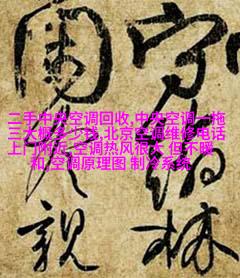 二手中央空调回收,中央空调一拖
三大概多少钱,北京空调维修电话
上门附近,空调热风很大 但不暖
和,空调原理图 制冷系统
守林
親